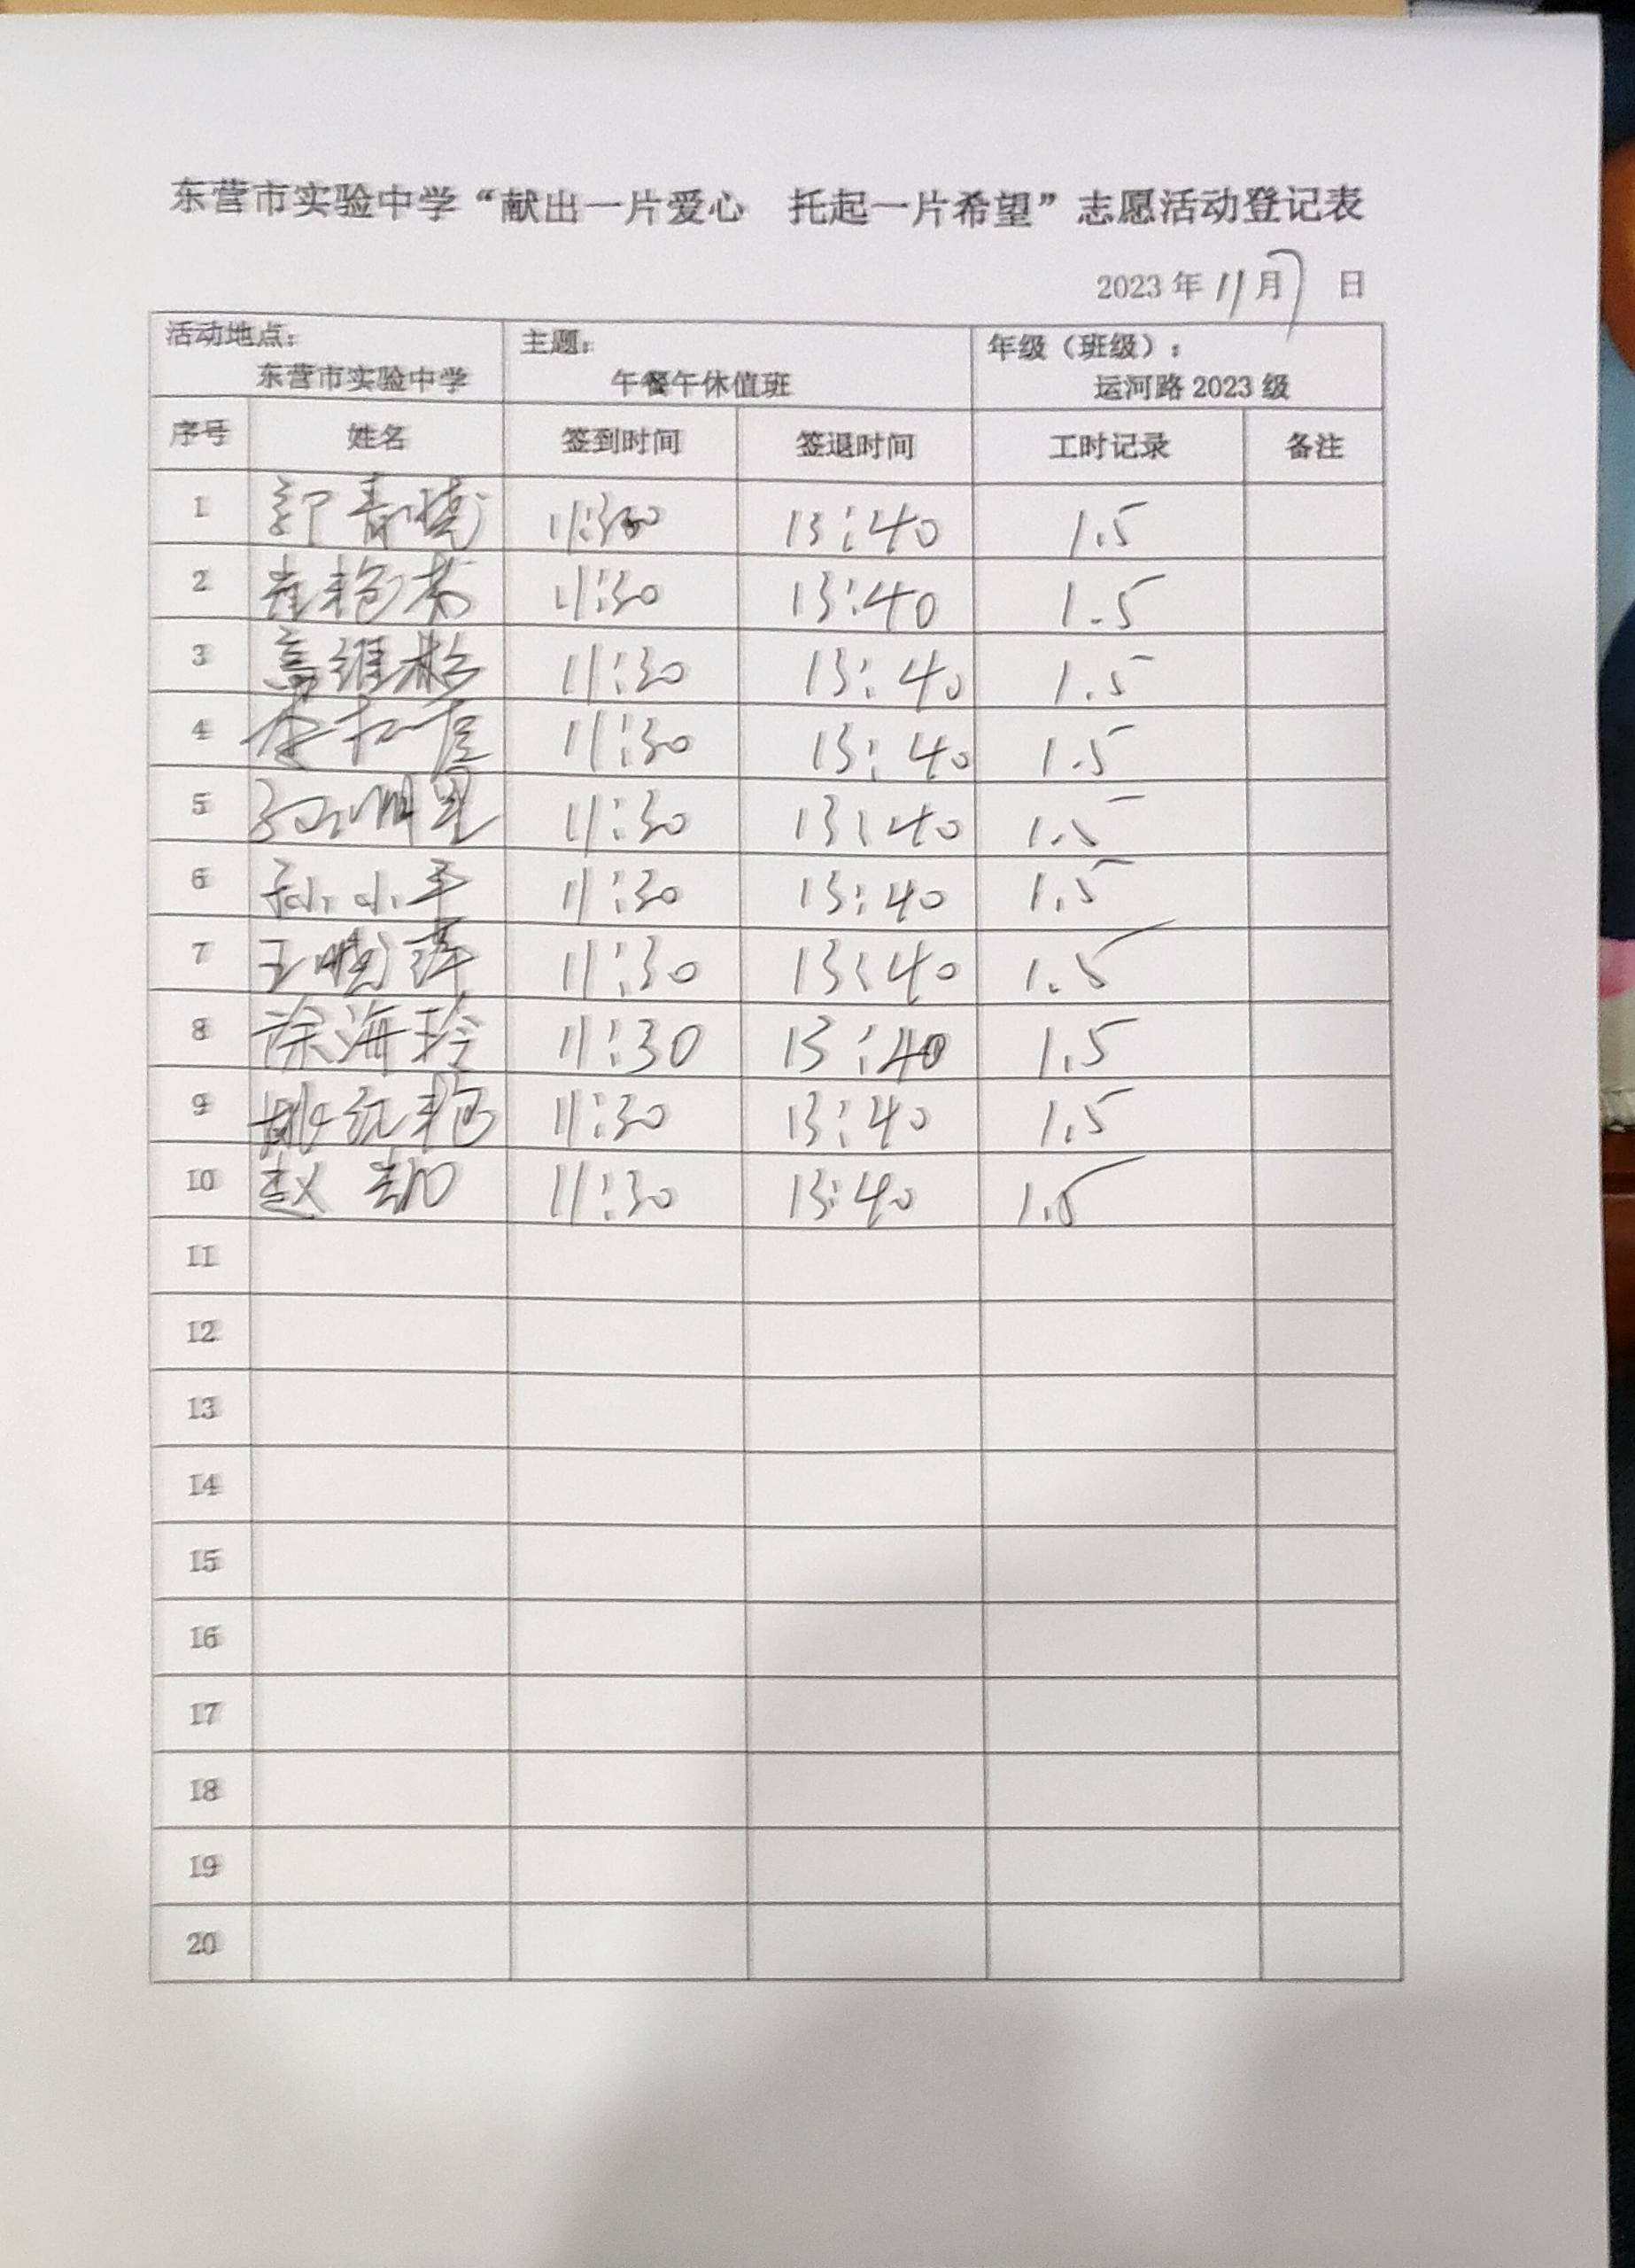 东营市实验中学“献出一片爱心 托起一片希望”志愿活动登记表
2023年11月7日
活动地点： 主题： 年级（班级）：
东营市实验中学 午餐午休值班 运河路2023级
序号 姓名 签到时间 签退时间 工时记录 备注
1 11:30 13:40 1.5
2 11:30 13:40 1.5
3 高维彬 11:30 13:40 1.5
4 11:30 13:40 1.5
5 11:30 13:40 1.5
6 孙小平 11:30 13:40 1.5
7 王晓萍 11:30 13:40 1.5
8 徐海玲 11:30 13:40 1.5
9 姚红艳 11:30 13:40 1.5
10 赵 11:30 13:40 1.5
11
12
13
14
15
16
17
18
19
20